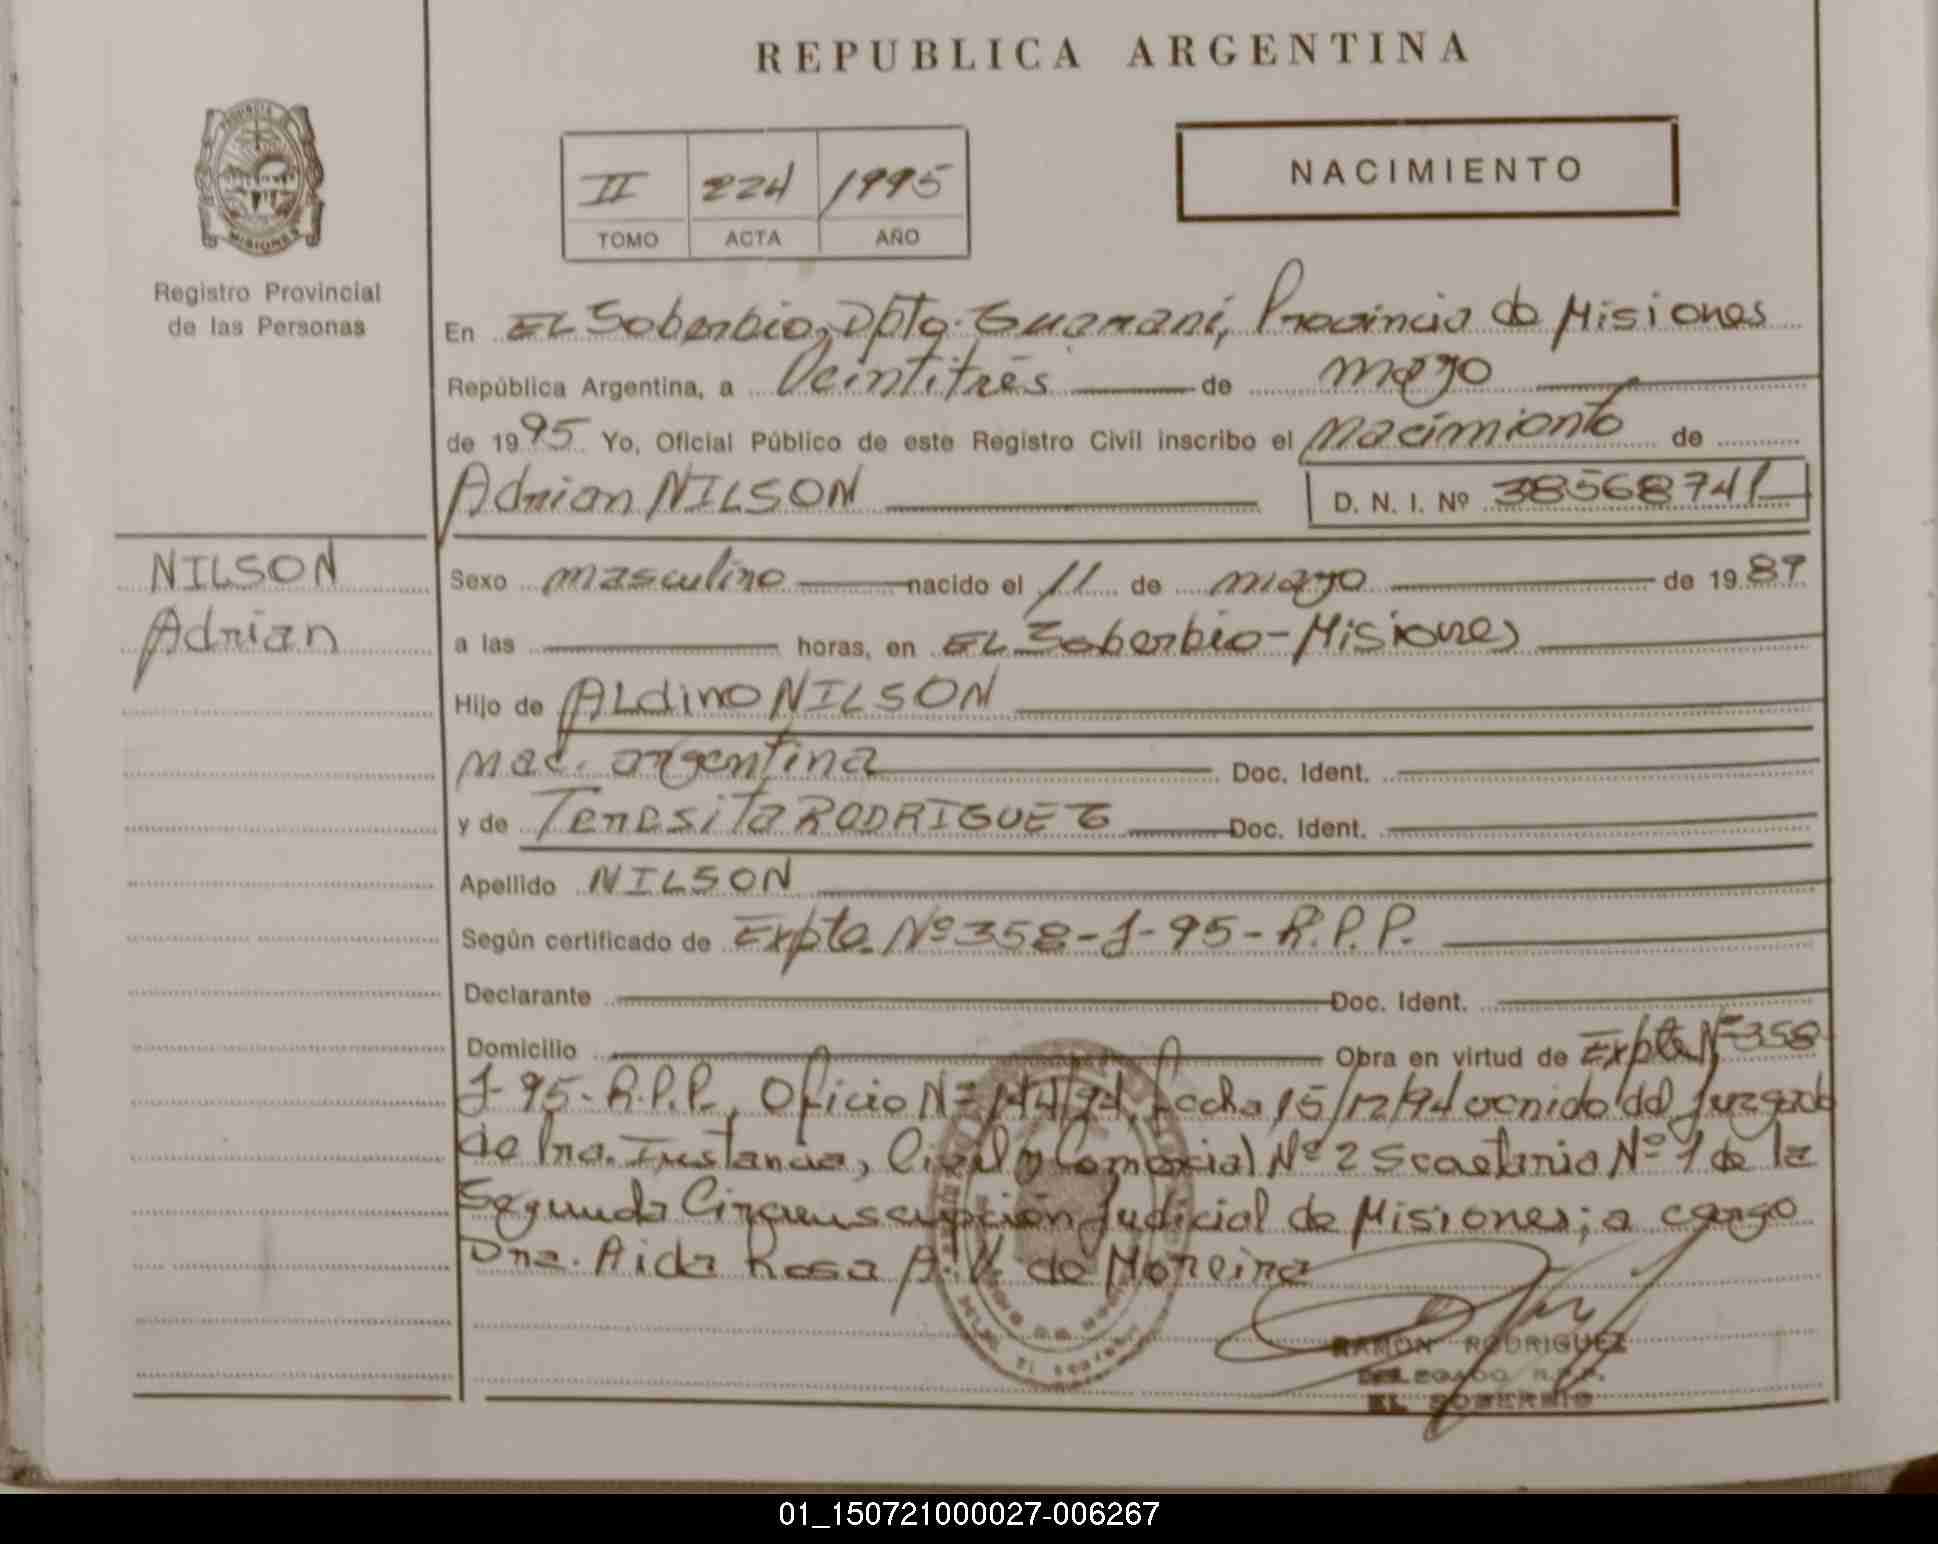 REPUBLICA ARGENTINA
PROVINCIA DE
MISIONES
Registro Provincial
de las Personas
II 224 1995
TOMO ACTA AÑO
NACIMIENTO
En EL Soberbio, Dpto. Guaraní, Provincia de Misiones
República Argentina, a Veintitrés de mayo
de 1995 Yo, Oficial Público de este Registro Civil inscribo el Nacimiento de
Adrian NILSON D. N. I. Nº 38568741
NILSON
Adrian
Sexo masculino nacido el 11 de mayo de 1987
a las horas, en EL Soberbio - Misiones
Hijo de ALdino NILSON
nac. argentina Doc. Ident.
y de Teresita RODRIGUEZ Doc. Ident.
Apellido NILSON
Según certificado de Expte. Nº 358-J-95-R.P.P.
Declarante Doc. Ident.
Domicilio Obra en virtud de Expte Nº 358
J-95-R.P.P. Oficio Nº 144/94, fecha 15/12/94 venido del Juzgado
de Pra. Instancia, Civil y Comercial Nº 2 Secretaria Nº 1 de la
Segunda Circunscripción Judicial de Misiones; a cargo
Dra. Aida Rosa A. V. de Moreira
RAMON RODRIGUEZ
DELEGADO R.P.P.
EL SOBERBIO
01_150721000027-006267